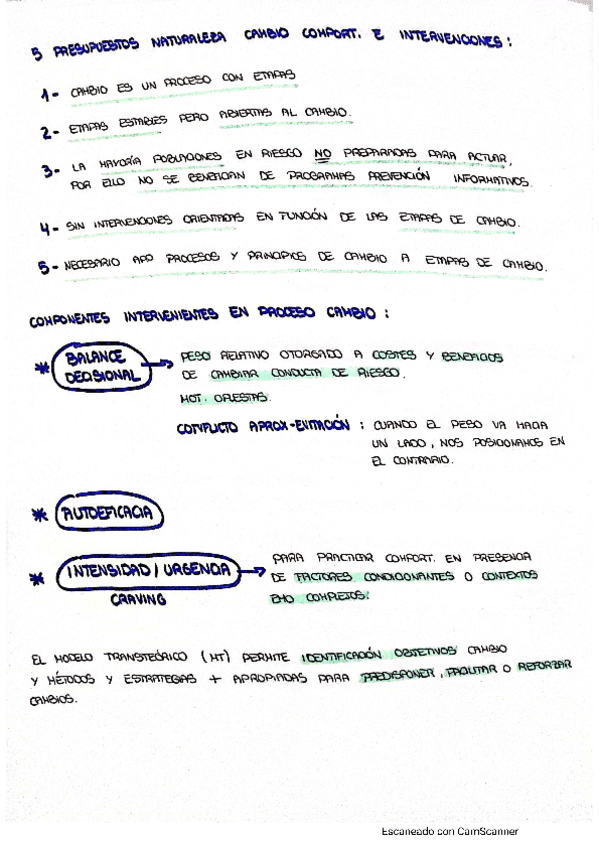 5 PRESUPUESTOS NATURALEZA CAMBIO COMPORT. E INTERVENCIONES:
1- CAMBIO ES UN PROCESO CON ETAPAS
2- ETAPAS ESTABLES PERO ABIERTAS AL CAMBIO.
3- LA MAYORÍA POBLACIONES EN RIESGO NO PREPARADAS PARA ACTUAR,
POR ELLO NO SE BENEFICIAN DE PROGRAMAS PREVENCIÓN INFORMATIVOS.
4- SIN INTERVENCIONES ORIENTADAS EN FUNCIÓN DE LAS ETAPAS DE CAMBIO.
5- NECESARIO APP PROCESOS Y PRINCIPIOS DE CAMBIO A ETAPAS DE CAMBIO.
COMPONENTES INTERVENIENTES EN PROCESO CAMBIO:
* BALANCE DECISIONAL → PESO RELATIVO OTORGADO A COSTES Y BENEFICIOS
DE CAMBIAR CONDUCTA DE RIESGO.
MOT. OPUESTAS.
CONFLICTO APROX-EVITACIÓN: CUANDO EL PESO VA HACIA
UN LADO, NOS POSICIONAMOS EN
EL CONTRARIO.
* AUTOEFICACIA
* INTENSIDAD / URGENCIA → PARA PRACTICAR COMPORT. EN PRESENCIA
CRAVING
DE FACTORES CONDICIONANTES O CONTEXTOS
EMO COMPLEJOS.
EL MODELO TRANSTEÓRICO (MT) PERMITE IDENTIFICACIÓN OBJETIVOS CAMBIO
Y MÉTODOS Y ESTRATEGIAS + APROPIADAS PARA PREDISPONER, FACILITAR O REFORZAR
CAMBIOS.
Escaneado con CamScanner